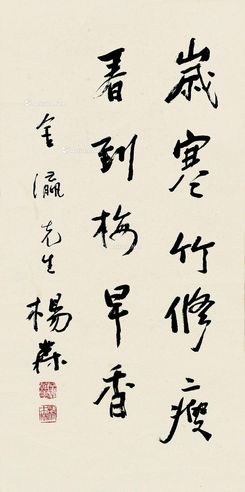 歲寒竹修瘦
春到梅早香
金瀛先生 楊森